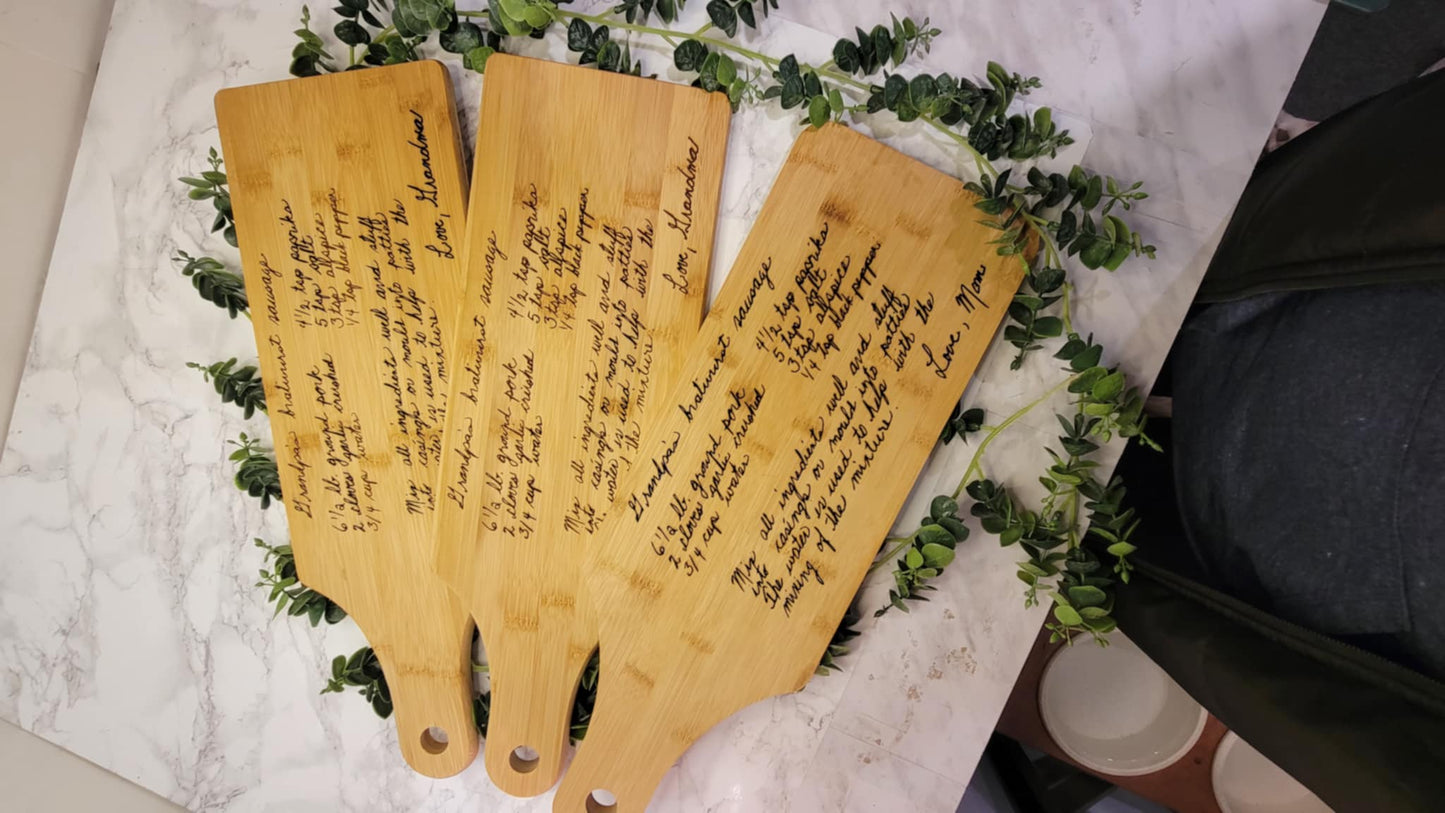 Grandpa's bratwurst sausage
6 1/2 lb. ground pork 4 1/2 tsp paprika
2 cloves garlic crushed 5 tsp salt
3/4 cup water 3 tsp allspice
1/4 tsp black pepper
Mix all ingredients well and stuff
into casings or moulds into patties
water is used to help with the
mixture.
Love, Grandma
Grandpa's bratwurst sausage
6 1/2 lb. ground pork 4 1/2 tsp paprika
2 cloves garlic crushed 5 tsp salt
3/4 cup water 3 tsp allspice
1/4 tsp black pepper
Mix all ingredients well and stuff
into casings or moulds into patties
water is used to help with the
the mixture
Love, Grandma
Grandpa's bratwurst sausage
6 1/2 lb. ground pork 4 1/2 tsp paprika
2 cloves garlic crushed 5 tsp salt
3/4 cup water 3 tsp allspice
1/4 tsp black pepper
Mix all ingredients well and stuff
into casings or moulds into patties
The water is used to help with the
mixing of the mixture.
Love, Mom